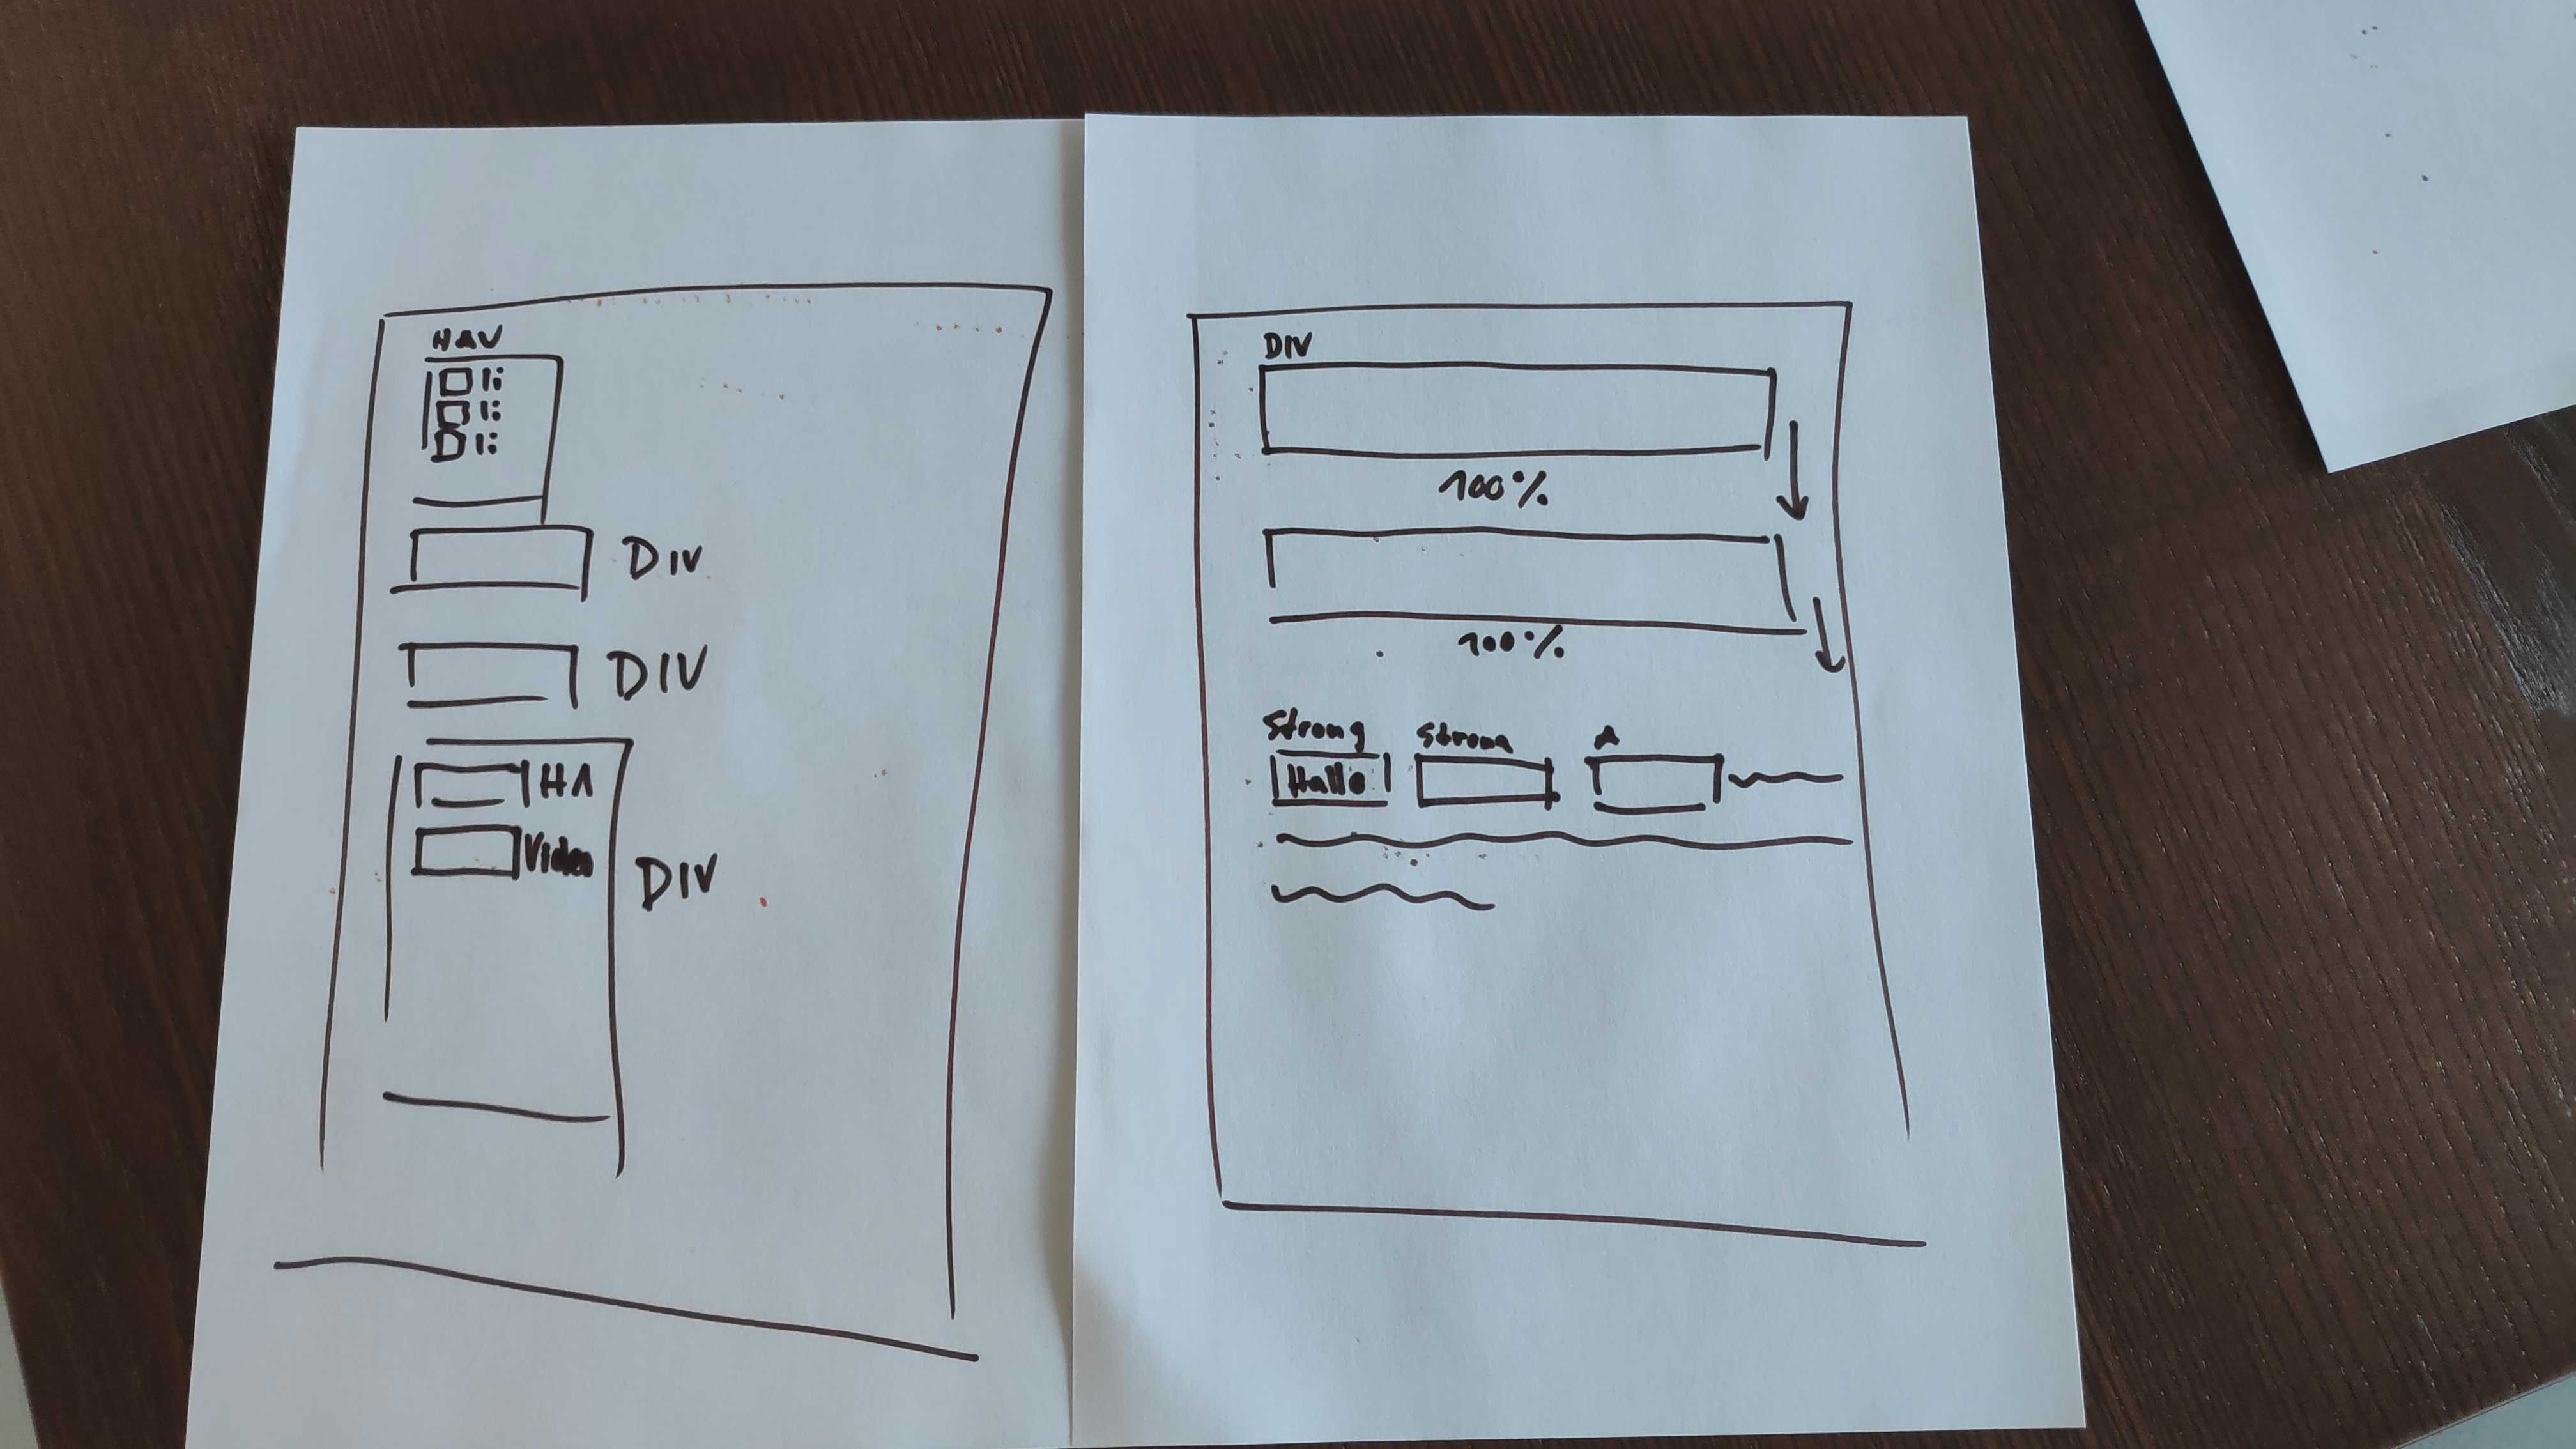 NAV
li
li
li
DIV
DIV
H1
Video
DIV
DIV
100%
100%
Strong Strong A
Hallo